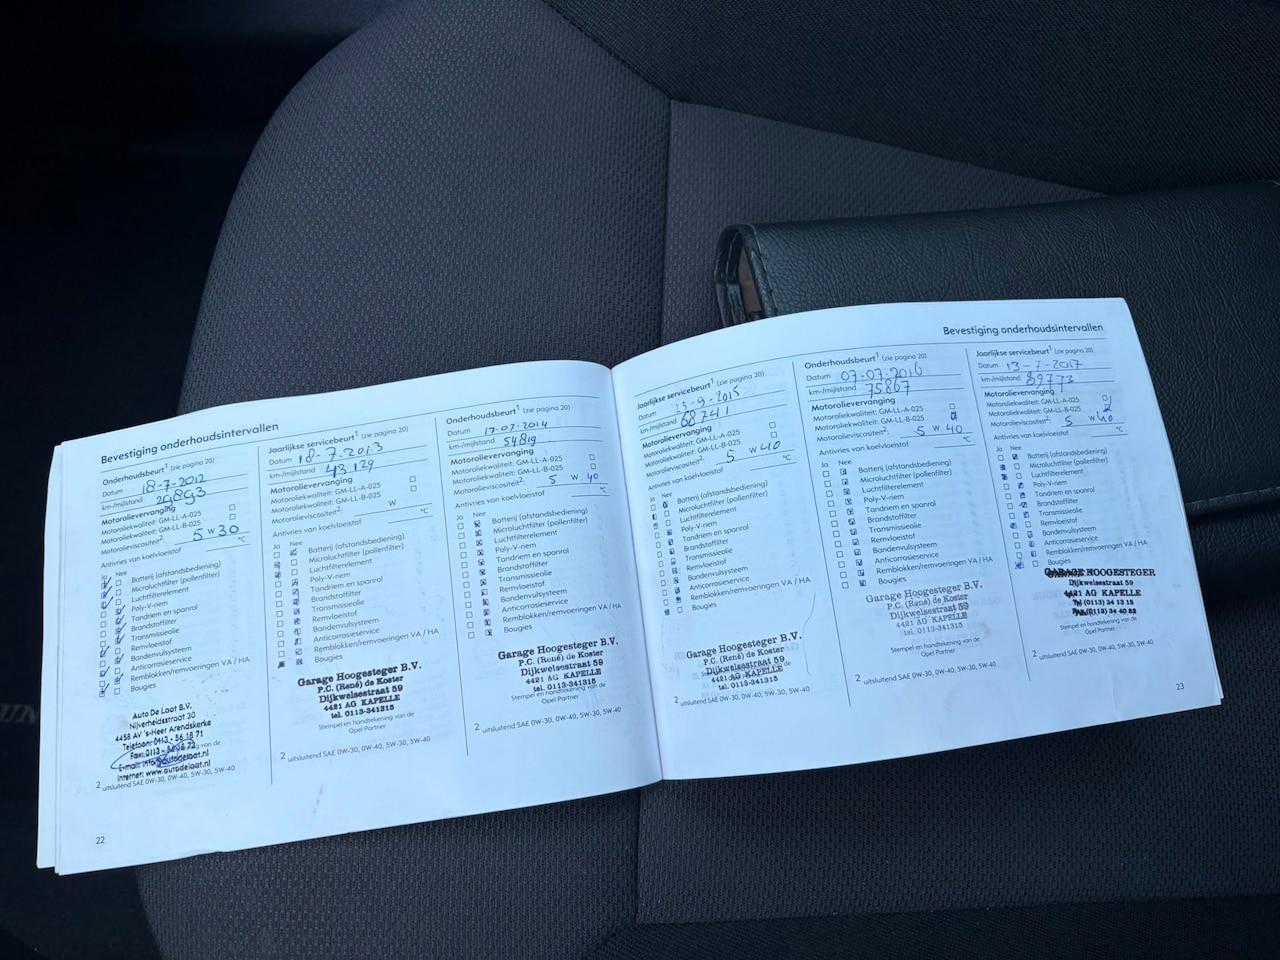 Bevestiging onderhoudsintervallen
Onderhoudsbeurt¹ (zie pagina 20)
Datum 18-7-2012
km-/mijlstand 29893
Motorolievervanging
Motoroliekwaliteit: GM-LL-A-025
Motoroliekwaliteit: GM-LL-B-025
Motorolieviscositeit²: 5 W 30
Antivries van koelvloeistof °C
Ja Nee
Batterij (afstandsbediening)
Microluchtfilter (pollenfilter)
Luchtfilterelement
Poly-V-riem
Tandriem en spanrol
Brandstoffilter
Transmissieolie
Remvloeistof
Bandenvulsysteem
Anticorrosieservice
Remblokken/remvoeringen VA / HA
Bougies
Auto De Laat B.V.
Nijverheidsstraat 30
4458 AV 's-Heer Arendskerke
Telefoon: 0113 - 56 18 71
Fax: 0113 - 56 18 72
E-mail: info@autodelaat.nl
Internet: www.autodelaat.nl
2 uitsluitend SAE 0W-30, 0W-40, 5W-30, 5W-40
22
Jaarlijkse servicebeurt¹ (zie pagina 20)
Datum 18-7-2013
km-/mijlstand 43129
Motorolievervanging
Motoroliekwaliteit: GM-LL-A-025
Motoroliekwaliteit: GM-LL-B-025
Motorolieviscositeit²: W
Antivries van koelvloeistof °C
Ja Nee
Batterij (afstandsbediening)
Microluchtfilter (pollenfilter)
Luchtfilterelement
Poly-V-riem
Tandriem en spanrol
Brandstoffilter
Transmissieolie
Remvloeistof
Bandenvulsysteem
Anticorrosieservice
Remblokken/remvoeringen VA / HA
Bougies
Garage Hoogesteger B.V.
P.C. (René) de Koster
Dijkwelsestraat 59
4421 AG KAPELLE
tel. 0113-341315
Stempel en handtekening van de
Opel Partner
2 uitsluitend SAE 0W-30, 0W-40, 5W-30, 5W-40
Onderhoudsbeurt¹ (zie pagina 20)
Datum 17-07-2014
km-/mijlstand 54819
Motorolievervanging
Motoroliekwaliteit: GM-LL-A-025
Motoroliekwaliteit: GM-LL-B-025
Motorolieviscositeit²: 5 W 40
Antivries van koelvloeistof °C
Ja Nee
Batterij (afstandsbediening)
Microluchtfilter (pollenfilter)
Luchtfilterelement
Poly-V-riem
Tandriem en spanrol
Brandstoffilter
Transmissieolie
Remvloeistof
Bandenvulsysteem
Anticorrosieservice
Remblokken/remvoeringen VA / HA
Bougies
Garage Hoogesteger B.V.
P.C. (René) de Koster
Dijkwelsestraat 59
4421 AG KAPELLE
tel. 0113-341315
Stempel en handtekening van de
Opel Partner
2 uitsluitend SAE 0W-30, 0W-40, 5W-30, 5W-40
Bevestiging onderhoudsintervallen
Jaarlijkse servicebeurt¹ (zie pagina 20)
Datum 15-9-2015
km-/mijlstand 68741
Motorolievervanging
Motoroliekwaliteit: GM-LL-A-025
Motoroliekwaliteit: GM-LL-B-025
Motorolieviscositeit²: 5 W 40
Antivries van koelvloeistof °C
Ja Nee
Batterij (afstandsbediening)
Microluchtfilter (pollenfilter)
Luchtfilterelement
Poly-V-riem
Tandriem en spanrol
Brandstoffilter
Transmissieolie
Remvloeistof
Bandenvulsysteem
Anticorrosieservice
Remblokken/remvoeringen VA / HA
Bougies
Garage Hoogesteger B.V.
P.C. (René) de Koster
Dijkwelsestraat 59
4421 AG KAPELLE
tel. 0113-341315
2 uitsluitend SAE 0W-30, 0W-40, 5W-30, 5W-40
Onderhoudsbeurt¹ (zie pagina 20)
Datum 07-07-2016
km-/mijlstand 75867
Motorolievervanging
Motoroliekwaliteit: GM-LL-A-025
Motoroliekwaliteit: GM-LL-B-025
Motorolieviscositeit²: 5 W 40
Antivries van koelvloeistof °C
Ja Nee
Batterij (afstandsbediening)
Microluchtfilter (pollenfilter)
Luchtfilterelement
Poly-V-riem
Tandriem en spanrol
Brandstoffilter
Transmissieolie
Remvloeistof
Bandenvulsysteem
Anticorrosieservice
Remblokken/remvoeringen VA / HA
Bougies
Garage Hoogesteger B.V.
P.C. (René) de Koster
Dijkwelsestraat 59
4421 AG KAPELLE
tel. 0113-341315
Stempel en handtekening van de
Opel Partner
2 uitsluitend SAE 0W-30, 0W-40, 5W-30, 5W-40
Jaarlijkse servicebeurt¹ (zie pagina 20)
Datum 13-7-2017
km-/mijlstand 89773
Motorolievervanging
Motoroliekwaliteit: GM-LL-A-025
Motoroliekwaliteit: GM-LL-B-025
Motorolieviscositeit²: 5 W 40
Antivries van koelvloeistof °C
Ja Nee
Batterij (afstandsbediening)
Microluchtfilter (pollenfilter)
Luchtfilterelement
Poly-V-riem
Tandriem en spanrol
Brandstoffilter
Transmissieolie
Remvloeistof
Bandenvulsysteem
Anticorrosieservice
Remblokken/remvoeringen VA / HA
Bougies
GARAGE HOOGESTEGER
Dijkwelsestraat 59
4421 AG KAPELLE
Tel (0113) 34 13 15
Fax (0113) 34 40 83
Stempel en handtekening van de
Opel Partner
2 uitsluitend SAE 0W-30, 0W-40, 5W-30, 5W-40
23